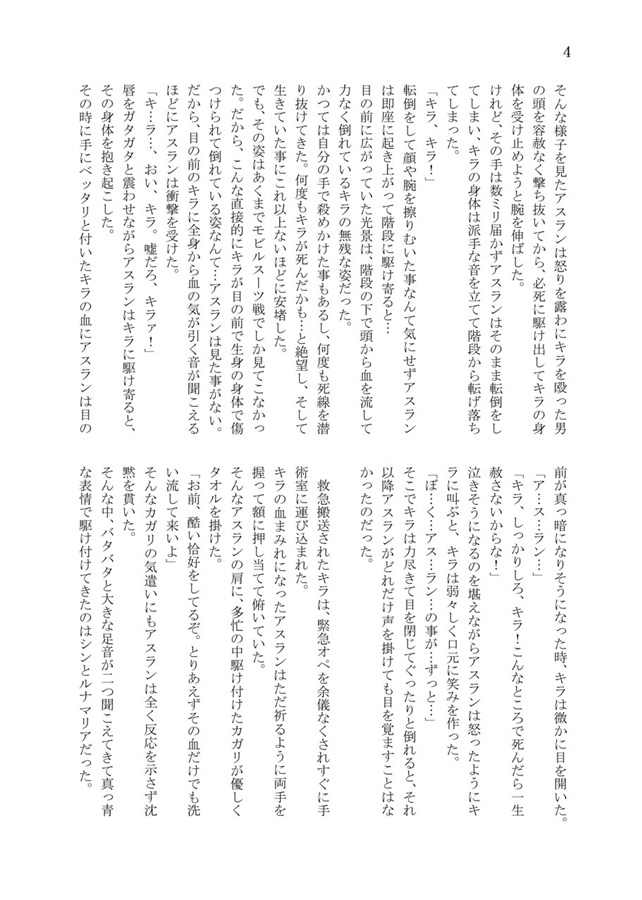 4
そんな様子を見たアスランは怒りを露わにキラを殴った男
の頭を容赦なく撃ち抜いてから、必死に駆け出してキラの身
体を受け止めようと腕を伸ばした。
けれど、その手は数ミリ届かずアスランはそのまま転倒をし
てしまい、キラの身体は派手な音を立てて階段から転げ落ち
てしまった。
「キラ、キラ！」
転倒をして顔や腕を擦りむいた事なんて気にせずアスラン
は即座に起き上がって階段に駆け寄ると…
目の前に広がっていた光景は、階段の下で頭から血を流して
力なく倒れているキラの無残な姿だった。
かつては自分の手で殺めかけた事もあるし、何度も死線を潜
り抜けてきた。何度もキラが死んだかも…と絶望し、そして
生きていた事にこれ以上ないほどに安堵した。
でも、その姿はあくまでモビルスーツ戦でしか見てこなかっ
た。だから、こんな直接的にキラが目の前で生身の身体で傷
つけられて倒れている姿なんて…アスランは見た事がない。
だから、目の前のキラに全身から血の気が引く音が聞こえる
ほどにアスランは衝撃を受けた。
「キ…ラ…、おい、キラ。嘘だろ、キラァ！」
唇をガタガタと震わせながらアスランはキラに駆け寄ると、
その身体を抱き起こした。
その時に手にベッタリと付いたキラの血にアスランは目の
前が真っ暗になりそうになった時、キラは微かに目を開いた。
「ア…ス…ラン…」
「キラ、しっかりしろ、キラ！こんなところで死んだら一生
赦さないからな！」
泣きそうになるのを堪えながらアスランは怒ったようにキ
ラに叫ぶと、キラは弱々しく口元に笑みを作った。
「ぼ…く…アス…ラン…の事が…ずっと…」
そこでキラは力尽きて目を閉じてぐったりと倒れると、それ
以降アスランがどれだけ声を掛けても目を覚ますことはな
かったのだった。
救急搬送されたキラは、緊急オペを余儀なくされすぐに手
術室に運び込まれた。
キラの血まみれになったアスランはただ祈るように両手を
握って額に押し当てて俯いていた。
そんなアスランの肩に、多忙の中駆け付けたカガリが優しく
タオルを掛けた。
「お前、酷い恰好をしてるぞ。とりあえずその血だけでも洗
い流して来いよ」
そんなカガリの気遣いにもアスランは全く反応を示さず沈
黙を貫いた。
そんな中、バタバタと大きな足音が二つ聞こえてきて真っ青
な表情で駆け付けてきたのはシンとルナマリアだった。